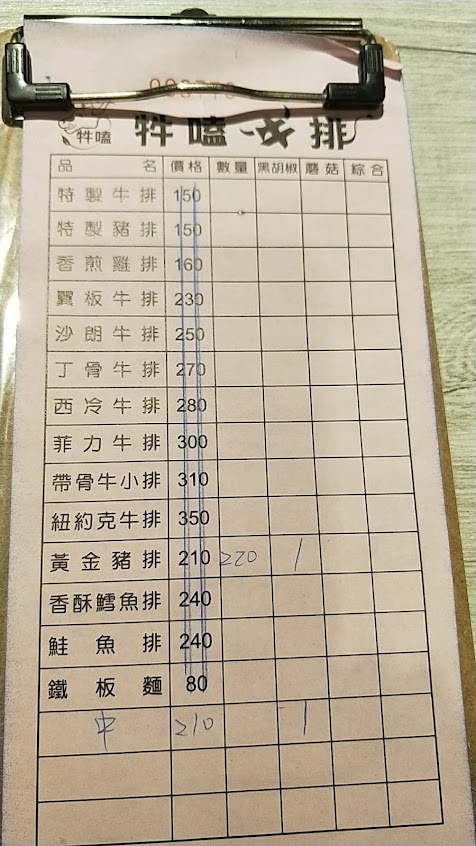 牪嗑
牪嗑牛排
品名 價格 數量 黑胡椒 蘑菇 綜合
特製牛排 150
特製豬排 150
香煎雞排 160
翼板牛排 230
沙朗牛排 250
丁骨牛排 270
西冷牛排 280
菲力牛排 300
帶骨牛小排 310
紐約克牛排 350
黃金豬排 210 220 1
香酥鱈魚排 240
鮭魚排 240
鐵板麵 80
中 210 1